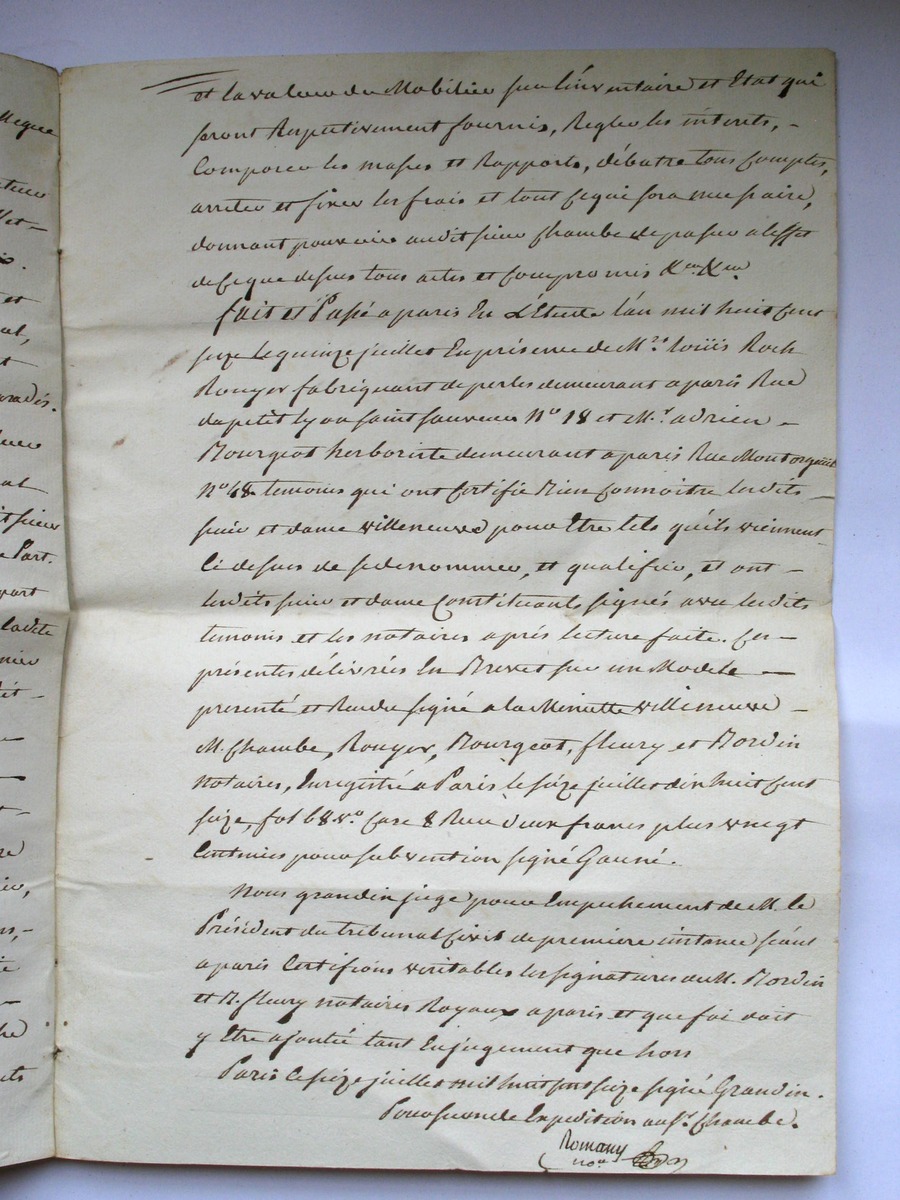 et la valeur du Mobilier sur l'inventaire et Etat qui
seront Respectivement fournis, Regler les interets, -
Composer les masses et Rapports, débatre tous Comptes,
arreter et fixer les frais et tout ce qui sera necessaire,
donnant pouvoir audit sieur Chambe de passer a l'effet
de Ce que dessus tous actes et Compromis &ca &ca
fait et Passé a paris En L'Etude l'an mil huit Cent
seize Le quinze juillet En présence de Mrs. Loüis Roch
Rouyer fabriquant de perles demeurant a paris Rue
du petit lyon saint sauveur No 18 et Mr. adrien -
Bourgeot herboriste demeurant a paris Rue Montorgüeil
No 48 temoins qui ont Certifié Bien Connoitre lesdits
sieur et dame Villeneuve pour Etre tels qu'ils viennent
Ci dessus de se denommer, et qualifier, et ont -
lesdits sieur et dame Constituants signés avec lesdits
temoins et les notaires après lecture faite. Ces -
présentes délivrées En Brevet sur un Modele -
presenté et Rendu signé a la Minutte Villeneuve -
M. Chambe, Rouyer, Bourgeot, fleury et Bordin
notaires, Enregistré a Paris le seize juillet dix huit Cent
seize, fol 68 vo. Case 8 Recu deux francs plus vingt
Centimes pour subvention signé Gauné.
Nous grandin juge pour Empechement de M. le
Président du tribunal Civil de premiere instance séant
a paris Certifions veritables les signatures de M. Bordin
et M. fleury notaires Royaux a paris et que foi doit
y Etre ajoutée tant En jugement que hors
Paris Ce seize juillet mil huit cent seize signé Grandin.
Pour seconde Expedition au Sr. Chambe.
Romany
nore